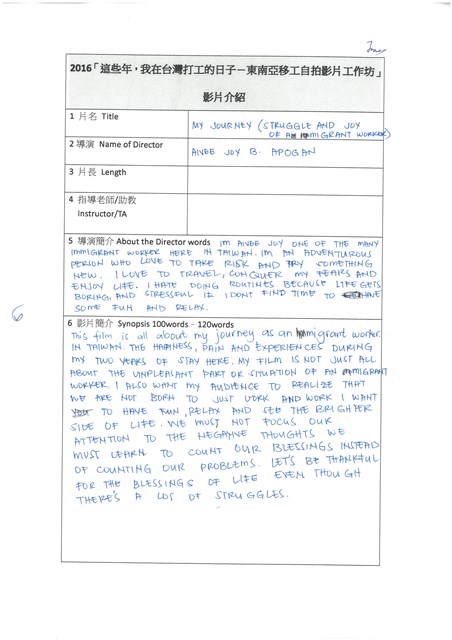 2016「這些年，我在台灣打工的日子－東南亞移工自拍影片工作坊」
影片介紹
1 片名 Title
MY JOURNEY (STRUGGLE AND JOY
OF AN IMMIGRANT WORKER)
2 導演 Name of Director
AIVEE JOY B. APOGAN
3 片長 Length
4 指導老師/助教
Instructor/TA
5 導演簡介 About the Director words IM AIVEE JOY ONE OF THE MANY
IMMIGRANT WORKER HERE IN TAIWAN. IM AN ADVENTUROUS
PERSON WHO LOVE TO TAKE RISK AND TRY SOMETHING
NEW. I LOVE TO TRAVEL, CONQUER MY FEARS AND
ENJOY LIFE. I HATE DOING ROUTINES BECAUSE LIFE GETS
BORING. AND STRESSFUL IF I DONT FIND TIME TO HAVE
SOME FUN AND RELAX.
6 影片簡介 Synopsis 100words - 120words
This film is all about my journey as an immigrant worker.
IN TAIWAN. THE HAPINESS, PAIN AND EXPERIENCES DURING
MY TWO YEARS OF STAY HERE. MY FILM IS NOT JUST ALL
ABOUT THE UNPLEASANT PART OR SITUATION OF AN IMMIGRANT
WORKER I ALSO WANT MY AUDIENCE TO REALIZE THAT
WE ARE NOT BORN TO JUST WORK AND WORK I WANT
YOU TO HAVE FUN, RELAX AND SEE THE BRIGHTER
SIDE OF LIFE. WE MUST NOT FOCUS OUR
ATTENTION TO THE NEGATIVE THOUGHTS WE
MUST LEARN TO COUNT OUR BLESSINGS INSTEAD
OF COUNTING OUR PROBLEMS. LET'S BE THANKFUL
FOR THE BLESSINGS OF LIFE EVEN THOUGH
THERE'S A LOT OF STRUGGLES.